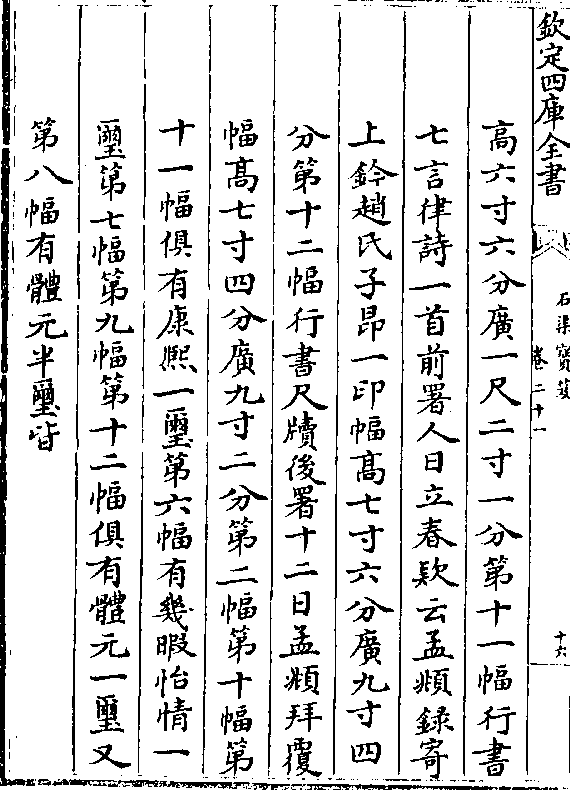 欽定四庫全書
石渠寶笈
卷二十一
十六
高六寸六分廣一尺二寸一分第十一幅行書
七言律詩一首前署人日立春欵云孟頫錄寄
上鈐趙氏子昂一印幅高七寸六分廣九寸四
分第十二幅行書尺牘後署十二日孟頫拜覆
幅高七寸四分廣九寸二分第二幅第十幅第
十一幅俱有康熙一璽第六幅有幾暇怡情一
璽第七幅第九幅第十二幅俱有體元一璽又
第八幅有體元半璽皆